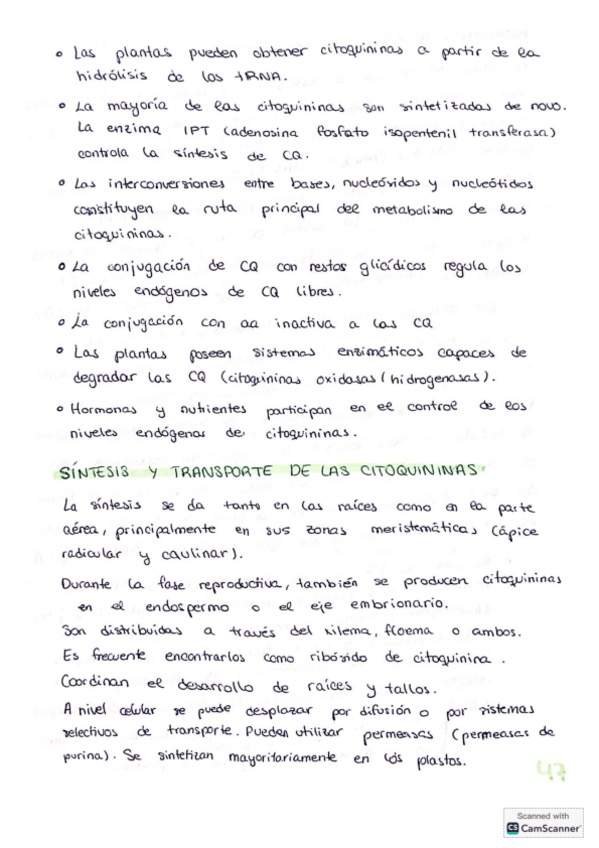 • Las plantas pueden obtener citoquininas a partir de la
hidrólisis de los tRNA.
• La mayoría de las citoquininas son sintetizadas de novo.
La enzima IPT (adenosina fosfato isopentenil transferasa)
controla la síntesis de CQ.
• Las interconversiones entre bases, nucleósidos y nucleótidos
constituyen la ruta principal del metabolismo de las
citoquininas.
• La conjugación de CQ con restos glicídicos regula los
niveles endógenos de CQ libres.
• La conjugación con aa inactiva a las CQ
• Las plantas poseen sistemas enzimáticos capaces de
degradar las CQ (citoquininas oxidasas/hidrogenasas).
• Hormonas y nutrientes participan en el control de los
niveles endógenos de citoquininas.
SÍNTESIS Y TRANSPORTE DE LAS CITOQUININAS
La síntesis se da tanto en las raíces como en la parte
aérea, principalmente en sus zonas meristemáticas (ápice
radicular y caulinar).
Durante la fase reproductiva, también se producen citoquininas
en el endospermo o el eje embrionario.
Son distribuidas a través del xilema, floema o ambos.
Es frecuente encontrarlos como ribósido de citoquinina.
Coordinan el desarrollo de raíces y tallos.
A nivel celular se puede desplazar por difusión o por sistemas
selectivos de transporte. Pueden utilizar permeasas (permeasas de
purina). Se sintetizan mayoritariamente en los plastos.
47
Scanned with
CS CamScanner